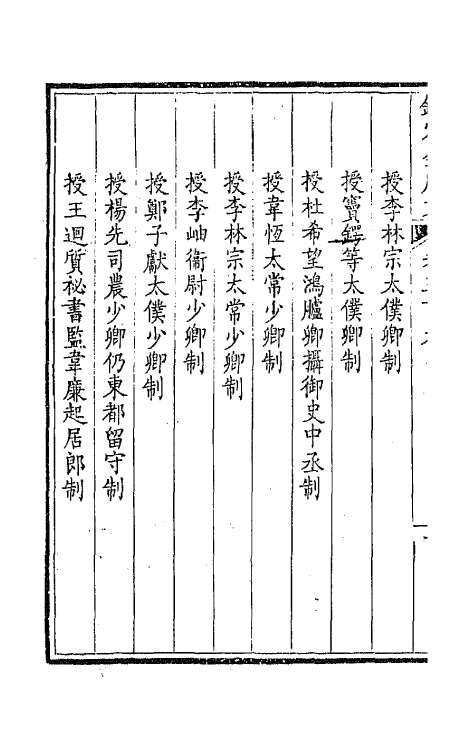 授李林宗太僕卿制
授竇鍔等太僕卿制
授杜希望鴻臚卿攝御史中丞制
授韋恆太常少卿制
授李林宗太常少卿制
授李岫衞尉少卿制
授鄭子獻太僕少卿制
授楊先司農少卿仍東都留守制
授王迴質秘書監韋廉起居郎制